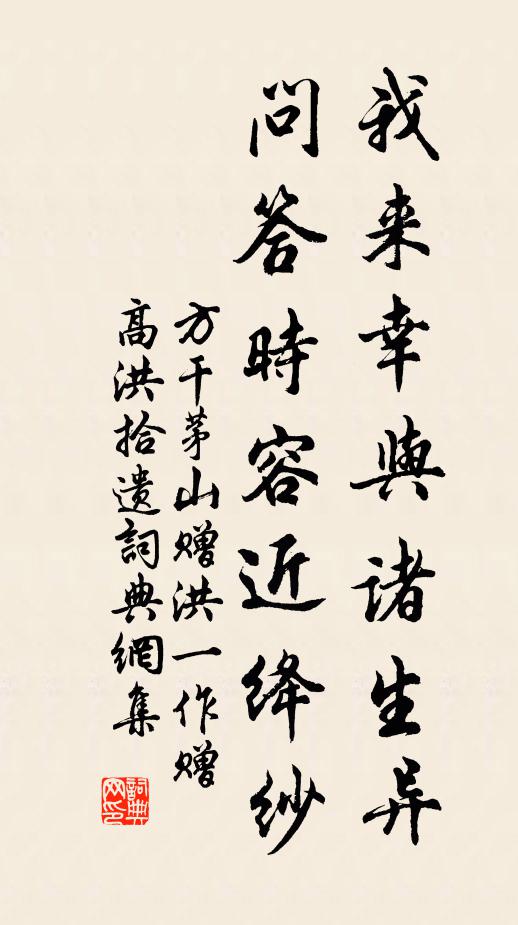 我来幸與諸生异
問答時容近绛紗
方干茅山赠洪一作赠
高洪拾遗詞典網集
詞典网印